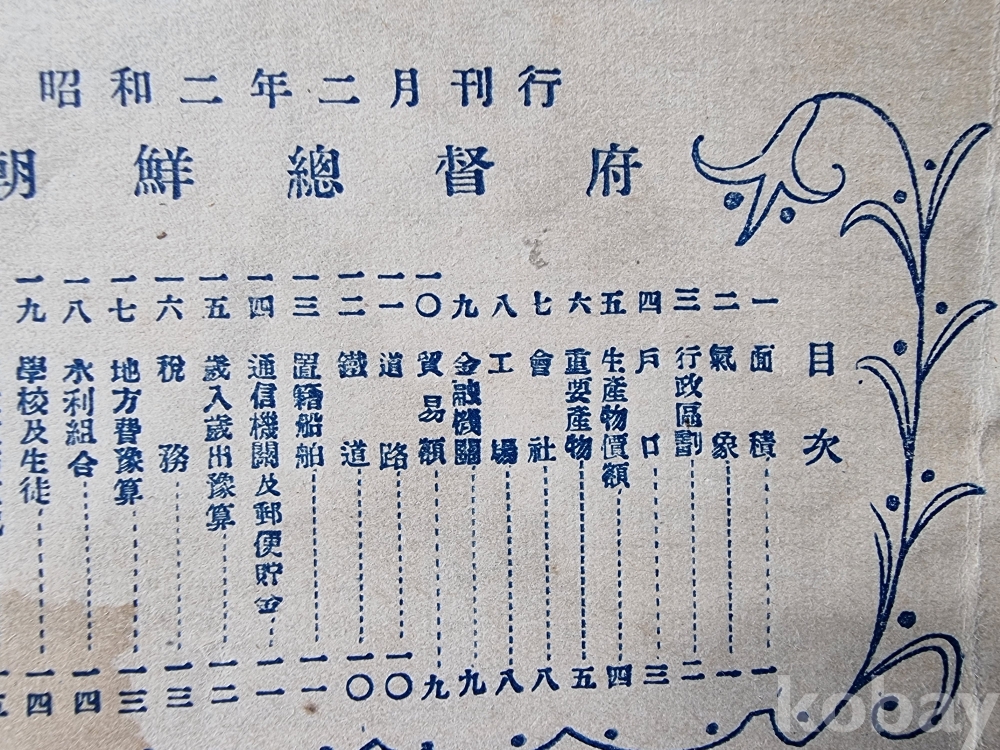 昭和二年二月刊行
朝鮮總督府
目次
一 面積 一
二 氣象 一
三 行政區劃 二
四 戶口 三
五 生產物價額 四
六 重要產物 五
七 會社 八
八 工場 八
九 金融機關 九
一〇 貿易額 九
一一 道路 一〇
一二 鐵道 一〇
一三 置籍船舶 一一
一四 通信機關及郵便貯金 一一
一五 歲入歲出豫算 一二
一六 稅務 一三
一七 地方費豫算 一三
一八 水利組合 一四
一九 學校及生徒 一四
kobay